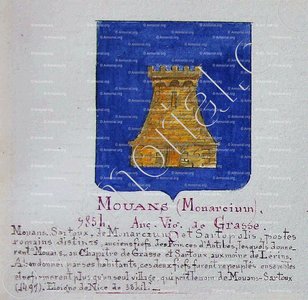 MOUANS (Monarcium).
983h. Anc. Vig. de Grasse.
Mouans Sartoux, de Monarcium et Sartolis, postes
romains distincts, anciens fiefs des Princes d'Antibes, lesquels donne-
rent Mouans au Chapitre de Grasse et Sartoux aux moines de Lérins.
Abandonnés par ses habitants, ces deux fiefs furent repeuplés ensemble
et ne formèrent plus qu'un seul village, qui prit le nom de Mouans-Sartoux
(1497). Eloigné de Nice de 38 kil.